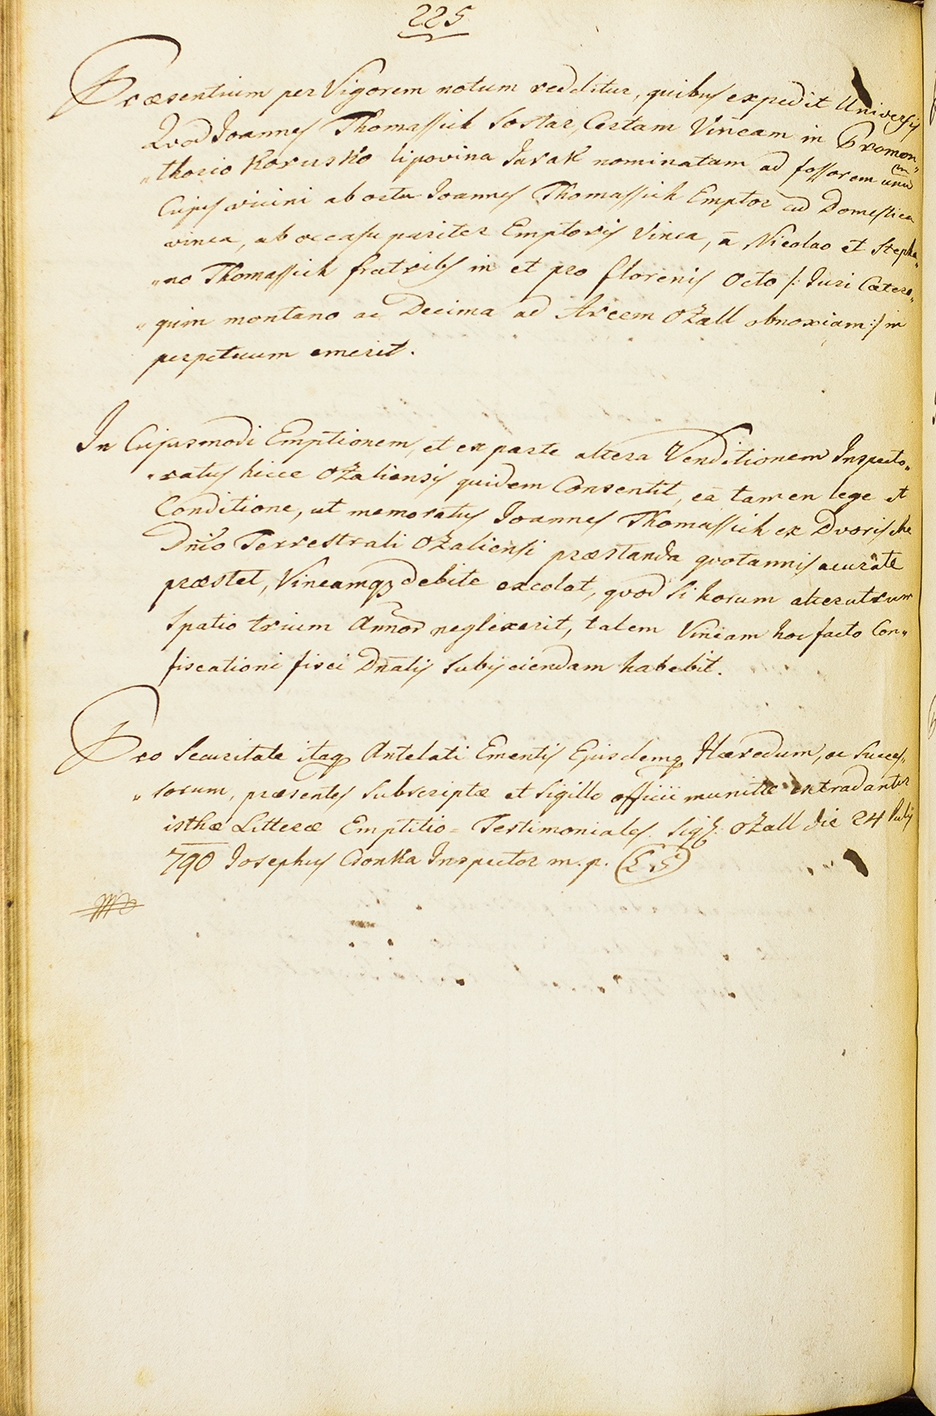 225
Præsentium per Vigorem notum redditur, quibus expedit Universis
Quod Joannes Thomassich Sostar, Certam Vineam in Promon„
„thorio Korusko lipovina Jarak nominatam ad fossorem unū
Cujus vicini ab ortu Joannes Thomassich Emptor cū Domestica
vinea, ab occasu pariter Emptoris Vinea, ā Nicolao et Stepha„
„no Thomassich fratribus in et pro florenis Octo /: Juri Cætero„
„quin montano ac Decima ad Arcem Ozall obnoxiam :/ in
perpetuum emerit.
In Cujusmodi Emptionem, et ex parte altera Venditionem Inspecto„
„ratus hicce Ozaliensis quidem Consentit, eā tamen lege et
Conditione, ut memoratus Joannes Thomassich ex Dvorische
Dnio Terrestrali Ozaliensi præstanda quotannis acurāte
præstet, Vineamqз debite excolat, quod si horum alterutrum
Spatio trium Annor neglexerit, talem Vineam hoc facto Con„
fiscationi fisci Dnalis Subijciendam habebit.
Pro Securitate itaq Antelati Ementis Ejusdemq Hæredum, ac Succes„
„sorum, præsentes Subscriptæ et Sigillo officii munitæ extradantur
isthæ Litteræ Emptitio = Testimoniales. Sig. Ozall die 24 Julij
790 Josephus Czonka Inspector m. p. (L. S.)